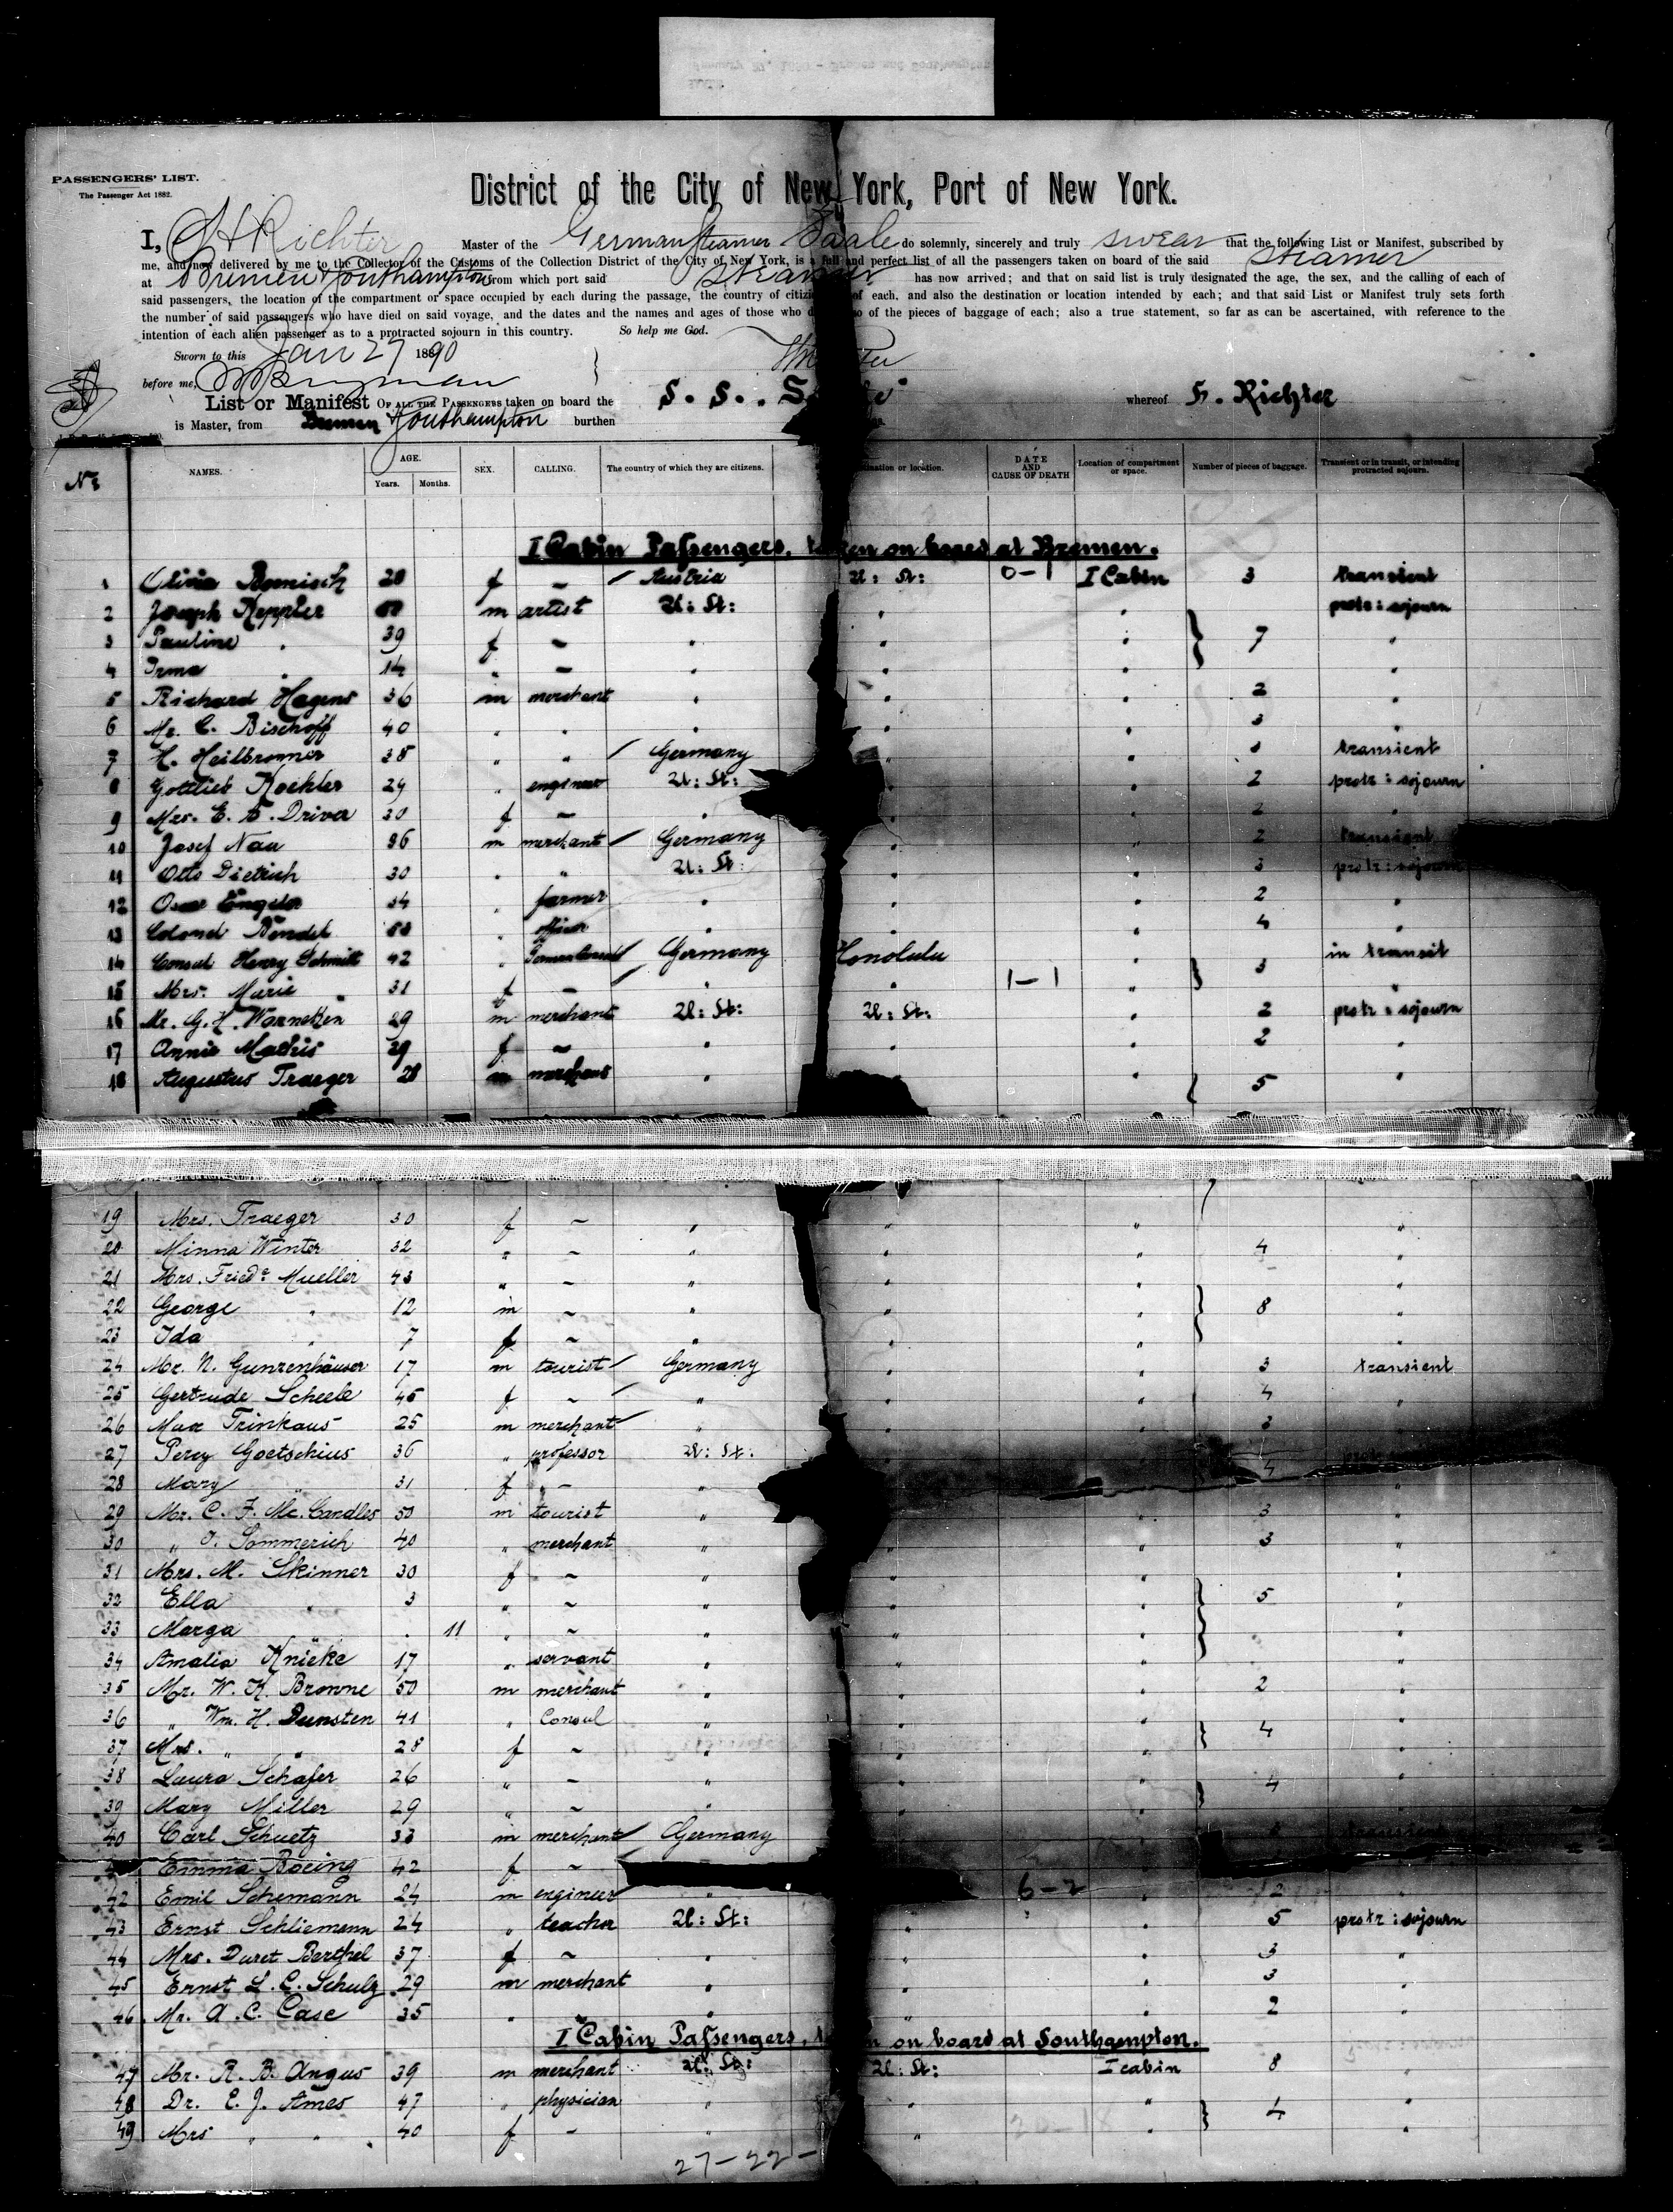 PASSENGERS' LIST.
The Passenger Act 1882.
District of the City of New York, Port of New York.
I, H Richter Master of the German Steamer Saale do solemnly, sincerely and truly swear that the following List or Manifest, subscribed by
me, and now delivered by me to the Collector of the Customs of the Collection District of the City of New York, is a full and perfect list of all the passengers taken on board of the said steamer
at Bremen & Southampton from which port said steamer has now arrived; and that on said list is truly designated the age, the sex, and the calling of each of
said passengers, the location of the compartment or space occupied by each during the passage, the country of of each, and also the destination or location intended by each; and that said List or Manifest truly sets forth
the number of said passengers who have died on said voyage, and the dates and the names and ages of those who of the pieces of baggage of each; also a true statement, so far as can be ascertained, with reference to the
intention of each alien passenger as to a protracted sojourn in this country. So help me God.
Sworn to this Jan 27 1890
before me,
List or Manifest OF ALL THE PASSENGERS taken on board the S. S. whereof H. Richter
is Master, from Bremen & Southampton burthen
No NAMES. AGE. Years. Months. SEX. CALLING. The country of which they are citizens. location. DATE AND CAUSE OF DEATH Location of compartment or space. Number of pieces of baggage. Transient or in transit, or intending protracted sojourn.
I Cabin Passengers, taken on board at Bremen.
1 28 f ~ / Austria U: St: 0-1 I Cabin 3 transient
2 Joseph Keppler m artist U: St: " " protr: sojourn
3 Pauline " 39 f ~ " " " } 7 "
4 Irma " 14 " ~ " " " "
5 Richard Hagens 36 m merchant " " " 2 "
6 Mr. C. Bischoff 40 " " " " " 3 "
7 H. Heilbronner 38 " " / Germany " " 3 transient
8 Gottlieb Koehler 29 " engineer U: St: " " 2 protr: sojourn
9 Mrs. E. A. Driver 30 f ~ " " 2 "
10 Josef Nau 36 m merchant / Germany " " 2 transient
11 Otto Dietrich 30 " " U: St: " " 3 protr: sojourn
12 34 " farmer " " " 2 "
13 Colonel " officer " " " 4 "
14 Consul Henry Schmidt 42 " / Germany Honolulu " } 3 in transit
15 Mrs. Marie " 31 f ~ / " " 1-1 " "
16 Mr. G. H. Warneken 29 m merchant U: St: U: St: " 2 protr: sojourn
17 Annie Mathis 29 f ~ " " " 2 "
18 Augustus Traeger 28 m merchant " " } 5 "
19 Mrs. Traeger 30 f ~ " " " "
20 Minna Winter 32 " ~ " " " 4 "
21 Mrs. Friede. Mueller 43 " ~ " " " "
22 George " 12 m ~ " " " } 8 "
23 Ida " 7 f ~ " " " "
24 Mr. N. Gunzenhäuser 17 m tourist / Germany " " 3 transient
25 Gertrude Scheele 45 f ~ / " " " 4 "
26 Max Trinkaus 25 m merchant / " " " 3 "
27 Percy Goetschius 36 " professor U: St: " 4
28 Mary " 31 f ~ "
29 Mr. C. F. Mc. Candles 50 m tourist " " " 3 "
30 " J. Sommerich 40 " merchant " " " 3 "
31 Mrs. M. Skinner 30 f ~ " " " "
32 Ella " 3 " ~ " " " } 5 "
33 Marga " . 11 " ~ " " " "
34 Amalia Knieke 17 " servant " " " . "
35 Mr. W. K. Browne 50 m merchant " " " 2 "
36 " Wm. H. Dunsten 41 " Consul " " " } 4 "
37 Mrs. " " 28 f ~ " " " "
38 Laura Schafer 26 " ~ " " " } 4 "
39 Mary Miller 29 " ~ " " "
40 Carl Schuetz 33 m merchant / Germany transient
Emma Boeing 42 f ~
42 Emil Schemann 24 m engineer / " 6-2 " 2 "
43 Ernst Schliemann 24 " teacher U: St: " " 5 protr: sojourn
44 Mrs. Duret Barthel 37 f ~ " " " 3 "
45 Ernst L. C. Schulz 29 m merchant " " " 3 "
46 Mr. A. C. Case 35 " " " " " 2 "
I Cabin Passengers, taken on board at Southampton.
47 Mr. R. B. Angus 39 m merchant U: St: U: St: I cabin 8 "
48 Dr. E. J. Ames 47 " physician " " " } 4 "
49 Mrs " " 40 f ~ " " " "
27-22-